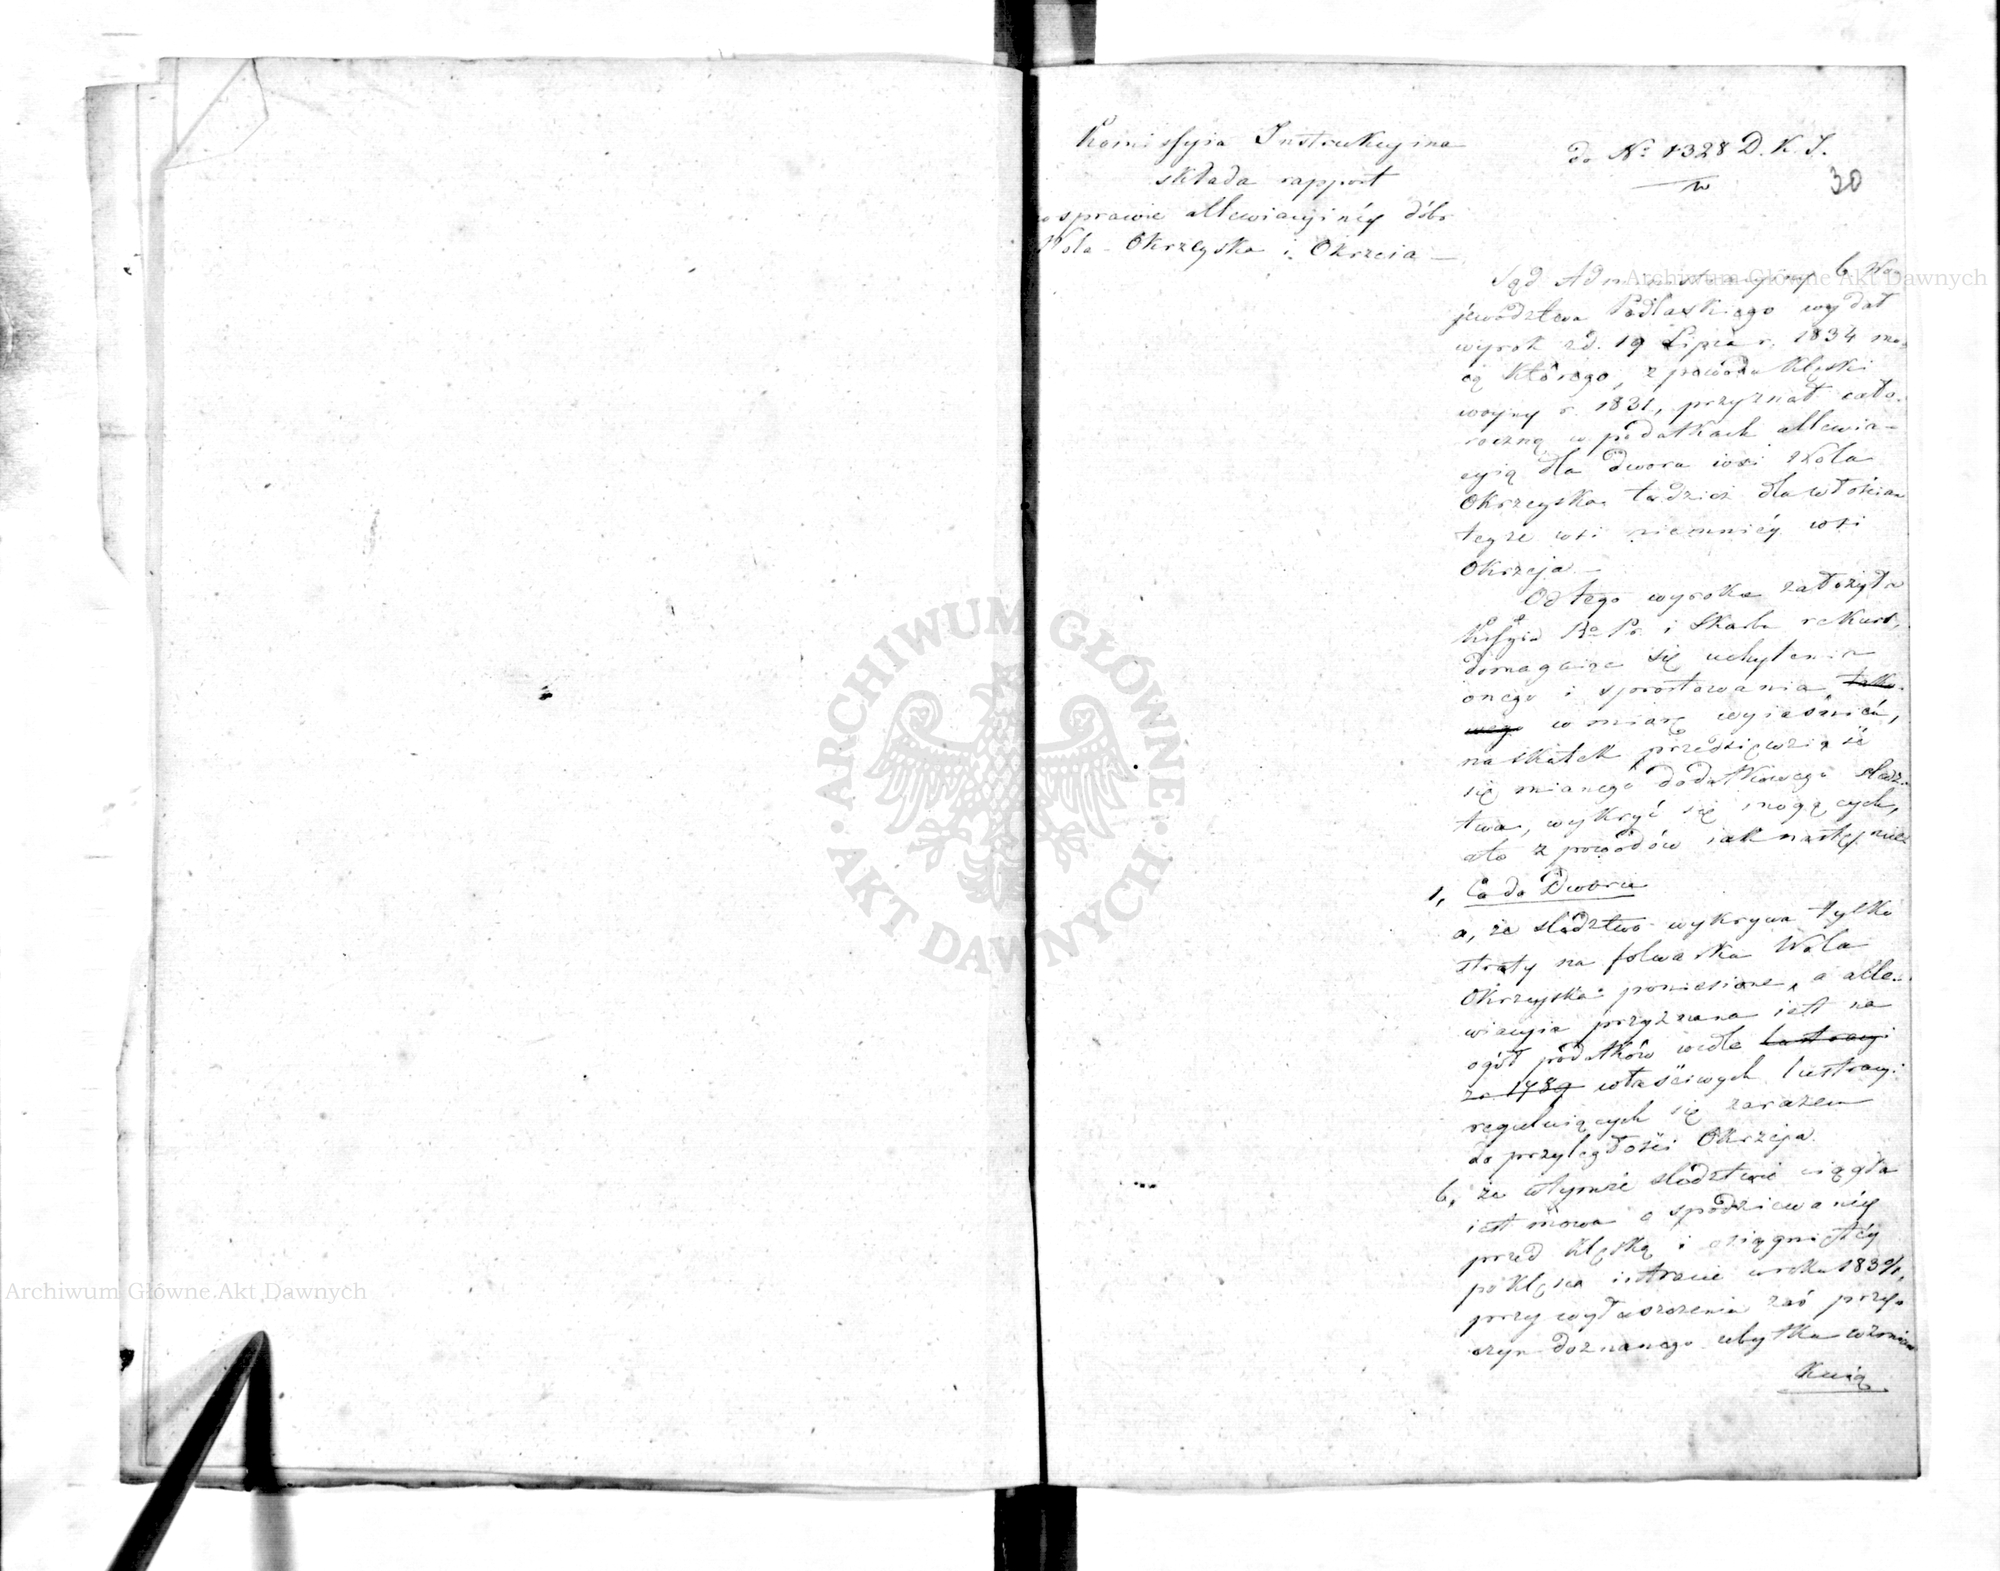 Komissyia Instrukcyina
składa rapport
w sprawie allewiacyinéy dóbr
Wola-Okrzeyska i Okrzeia —
do Nº 1328 D.K.I.
w
30
Sąd Administracyiny b. Wo
jewództwa Podlaskiego wydał
wyrok zd. 19 Lipca r. 1834 mo-
cą którego, z powodu klęski
woyny r. 1831, przyznał cało-
roczną w podatkach allewia-
cyią dla dworu wsi Wola
Okrzeyska tudzież dla włościan
teyże wsi niemniéy wsi
Okrzeja —
Od tego wyroku założyła
Kssyia Rº Pr. i Skarbu rekurs,
domagaiąc się uchylenia
onego i sprostowania tako-
wego w miarę wyiaśnień,
na skutek przedsięwziąść
się mianego dodatkowego śledz-
twa, wykryć się mogących,
a to z powodów iak następuie
1, Co do Dworu
a, że śledztwo wykrywa tylko
straty na folwarku Wola
Okrzeyska poniesione, a alle-
wiacyia przyznana iest na
ogół podatków wedle lustracyi
zr. 1789 właściwych lustracyi
reguluiących się zarazem
do przyległości Okrzeja.
b, że wtymże śledztwie ciągła
iest mowa o spodziewanéy
przed klęską i osiągniętéy
po klęsce intracie wroku 183⁰/₁,
przy wytłuszczeniu zaś przy-
czyn doznanego ubytku wzmian
Kuią
Archiwum Główne Akt Dawnych
Archiwum Główne Akt Dawnych
ARCHIWUM GŁÓWNE · AKT DAWNYCH ·